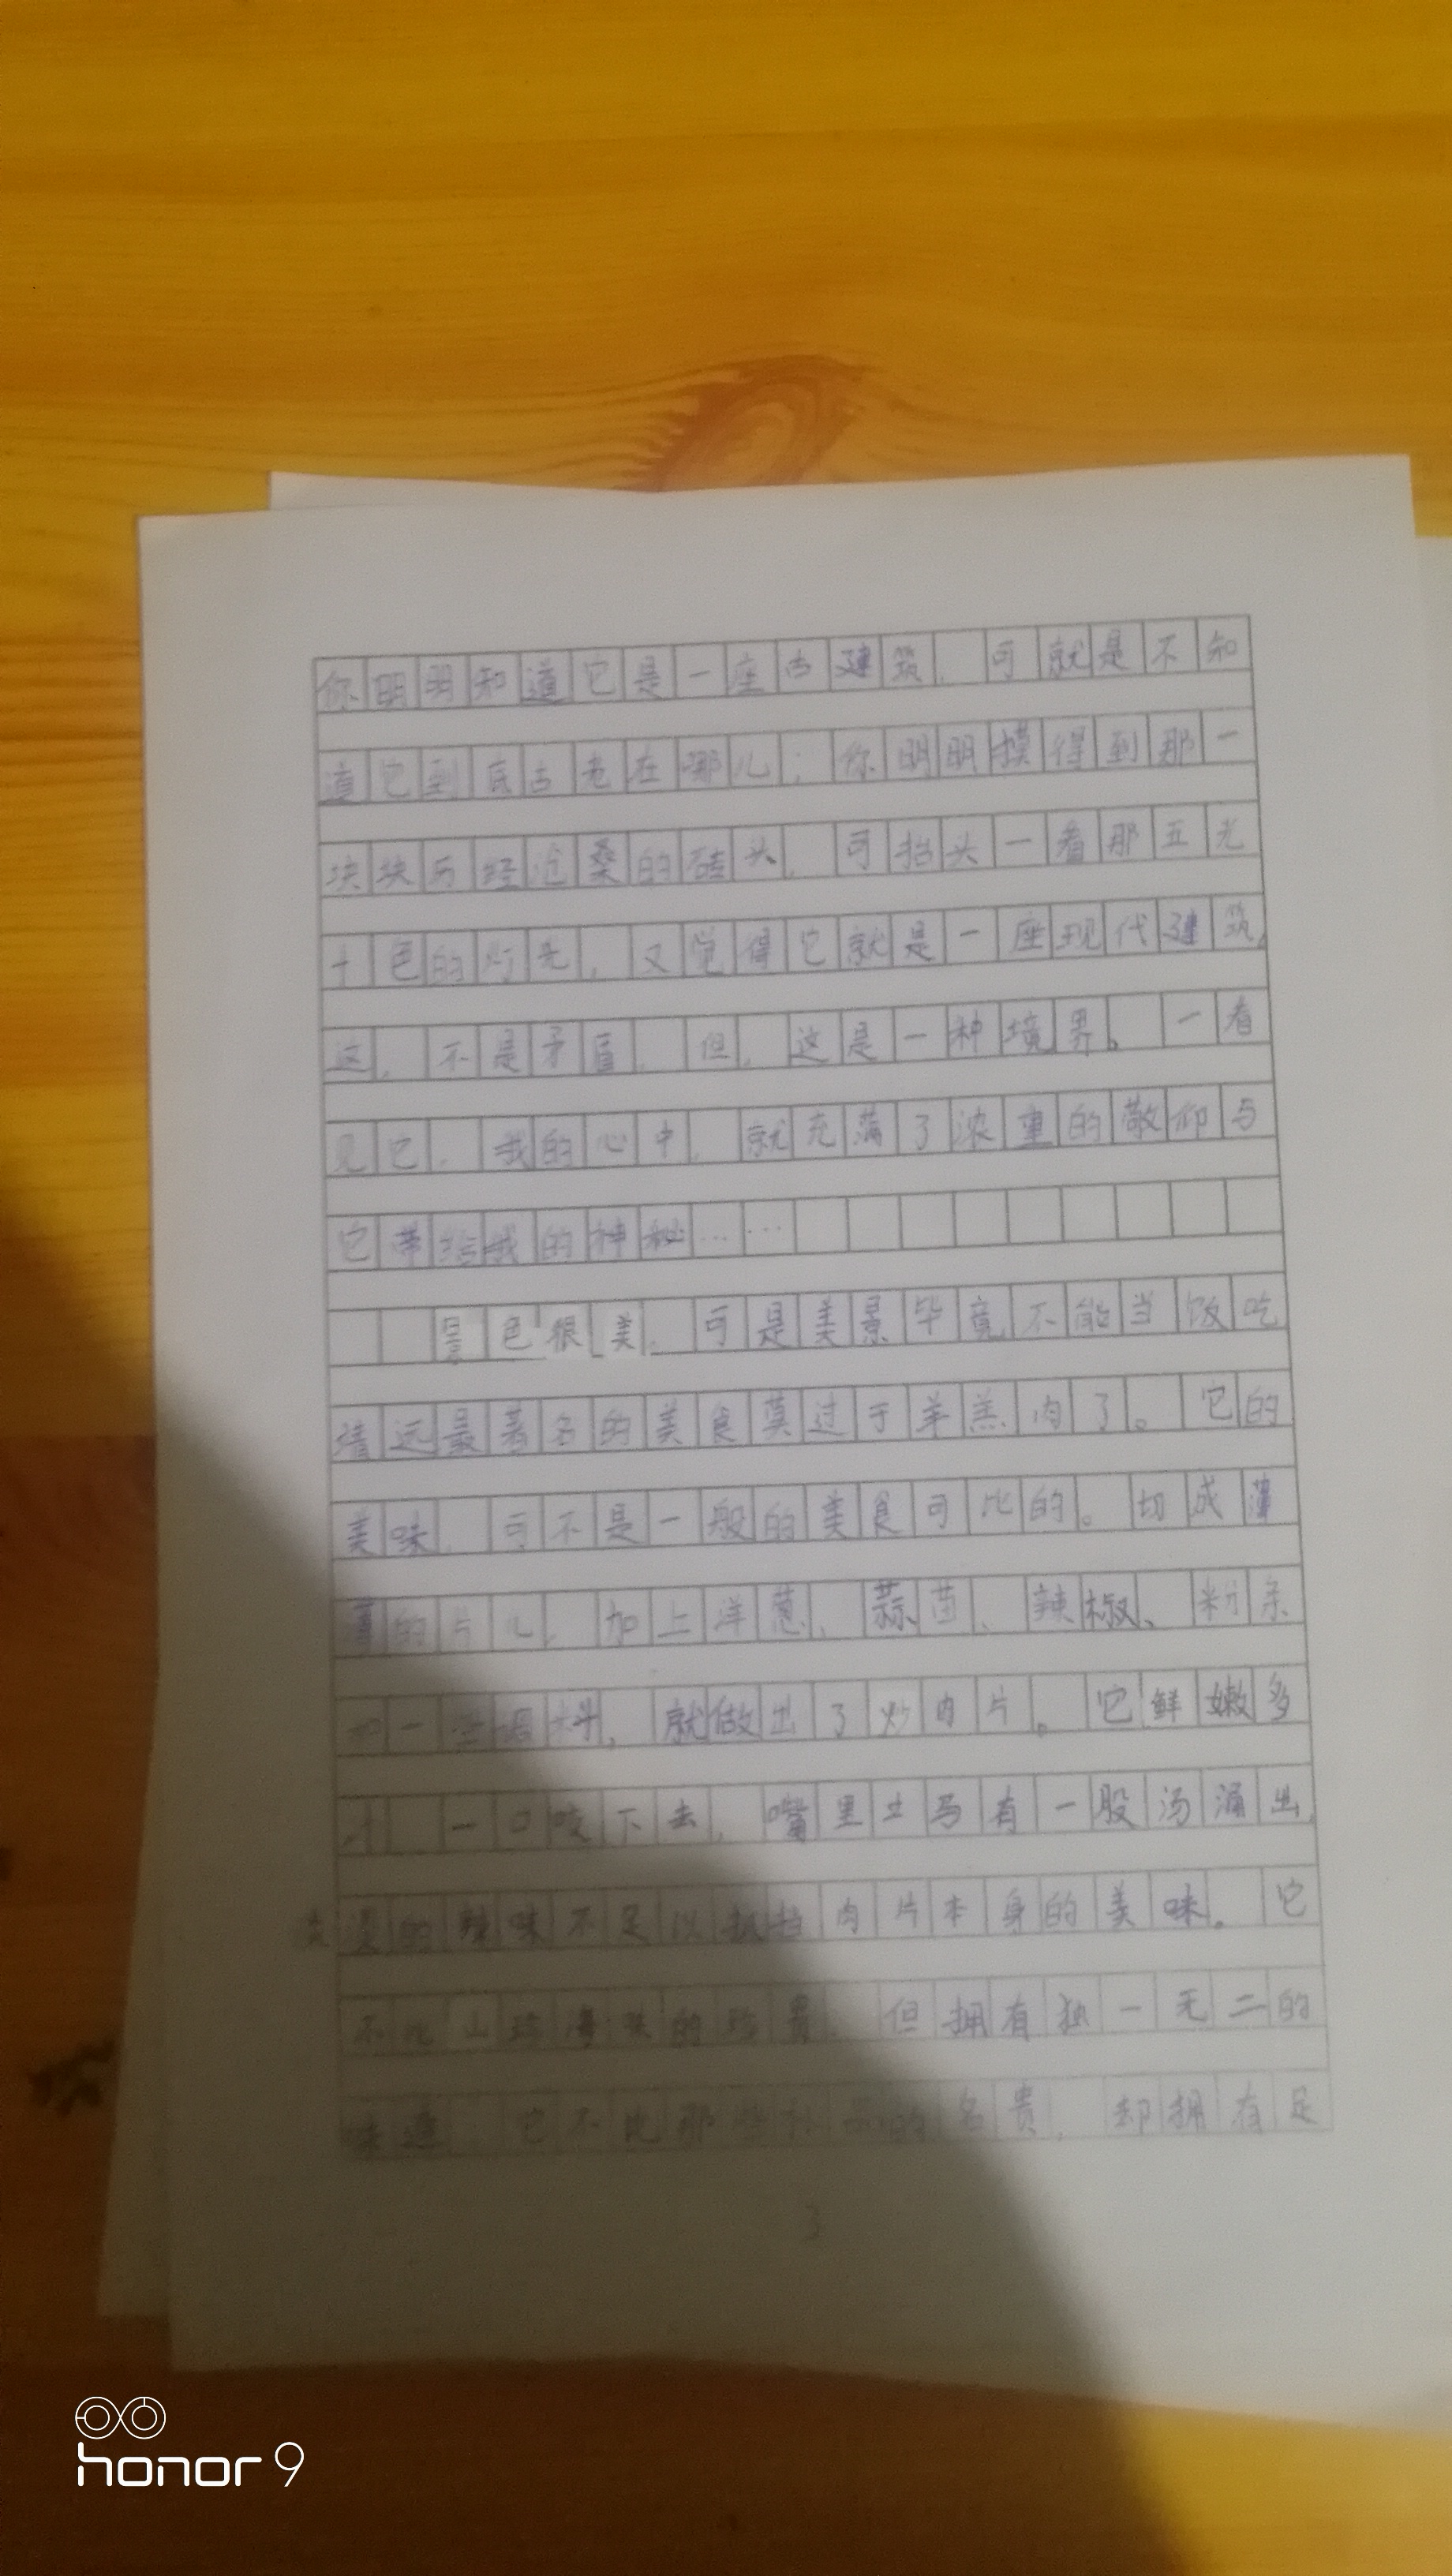 你明明知道它是一座古建筑，可就是不知
道它到底古老在哪儿；你明明摸得到那一
块块历经沧桑的砖头，可抬头一看那五光
十色的灯光，又觉得它就是一座现代建筑，
这，不是矛盾，但，这是一种境界。一看
见它，我的心中，就充满了浓重的敬仰与
它带给我的神秘……
景色很美，可是美景毕竟不能当饭吃
靖远最著名的美食莫过于羊羔肉了。它的
美味，可不是一般的美食可比的。切成薄
薄的片儿，加上洋葱、蒜苗、辣椒、粉条
和一些调料，就做出了炒肉片。它鲜嫩多
汁，一口咬下去，嘴里立马有一股汤涌出，
的辣味不足以抵挡肉片本身的美味。它
不比山珍海味的珍贵，但拥有独一无二的
味道，它不比那些补品的名贵，却拥有足
3
honor 9